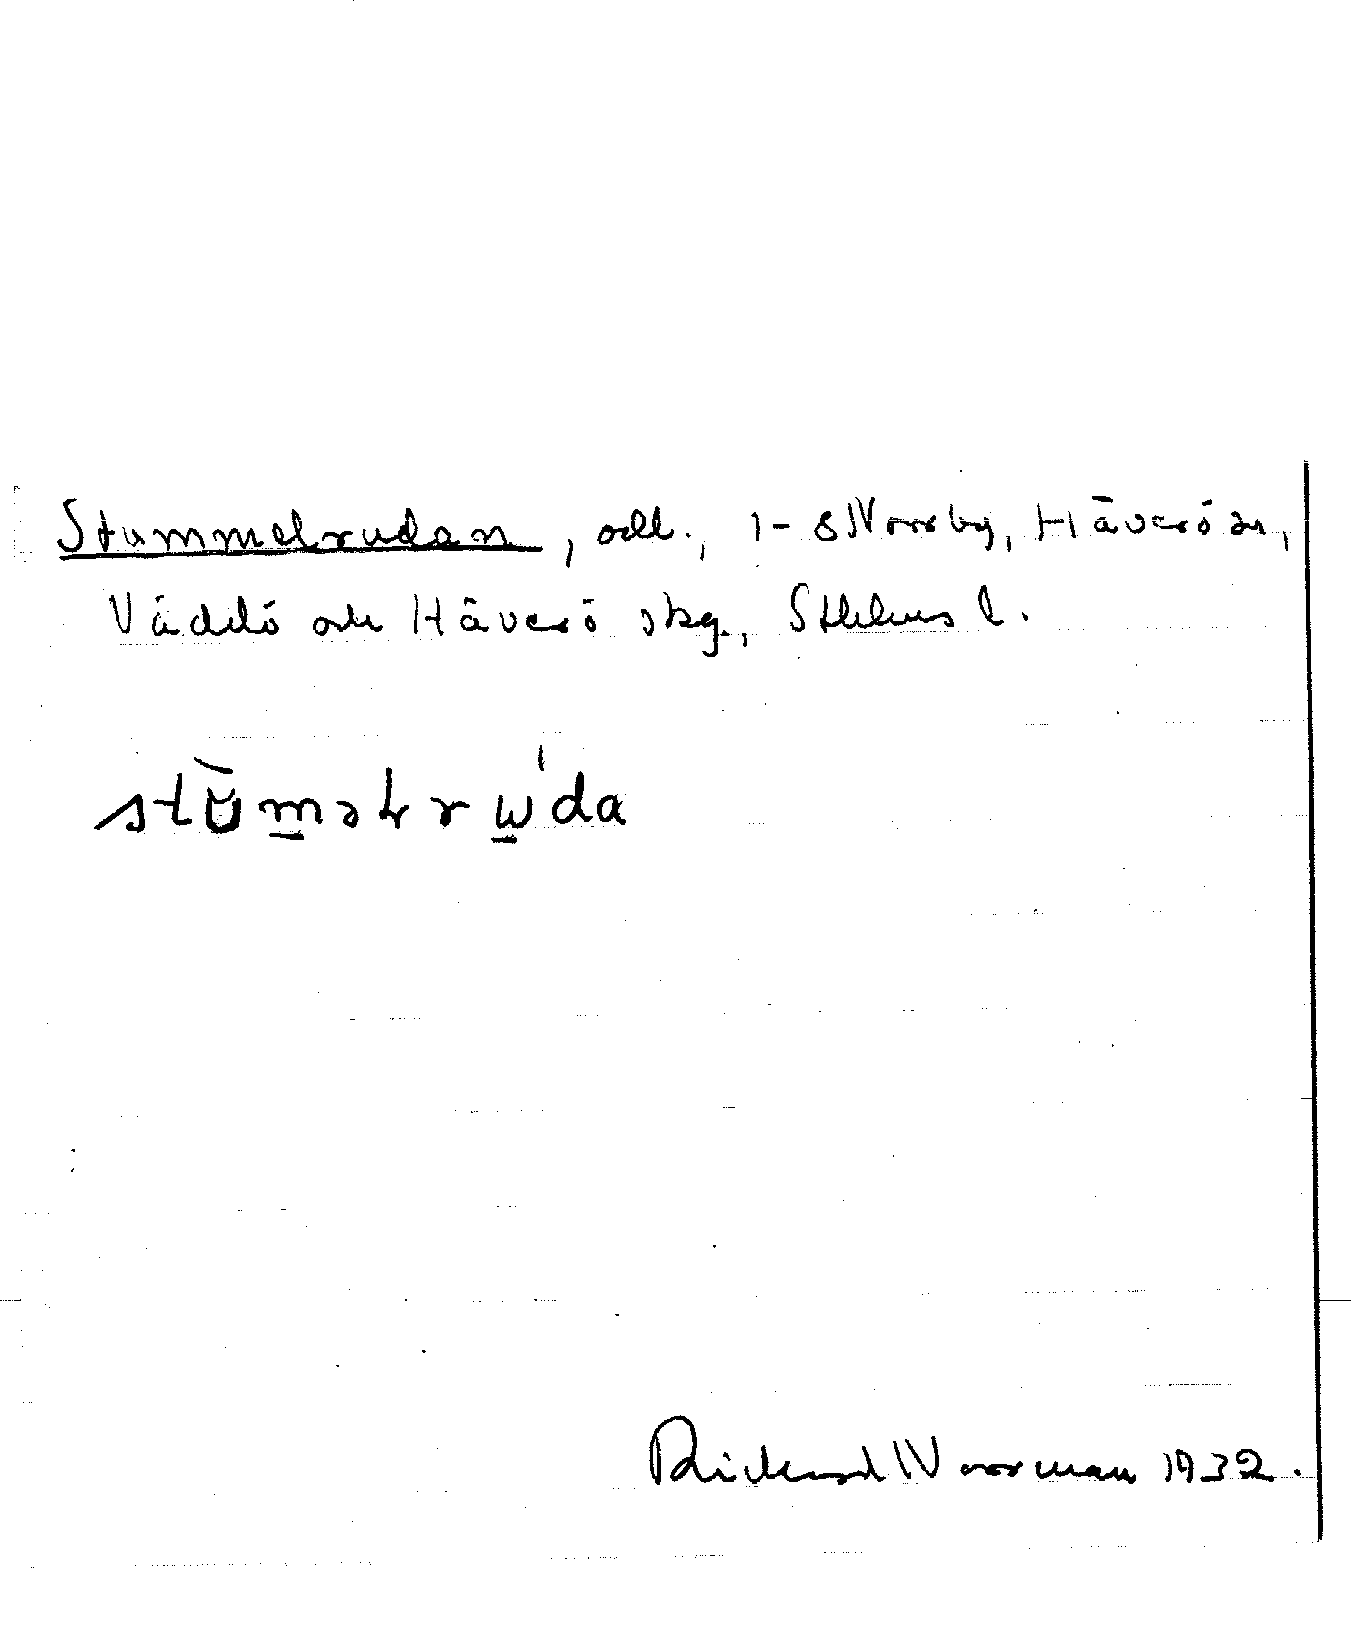 Stummelrudan, odl., 1-8 Norrby, Häverö sn,
Väddö och Häverö skg., Sthlms l.
stŭ̀mələrɯ'da
Rickard Norrman 1932.